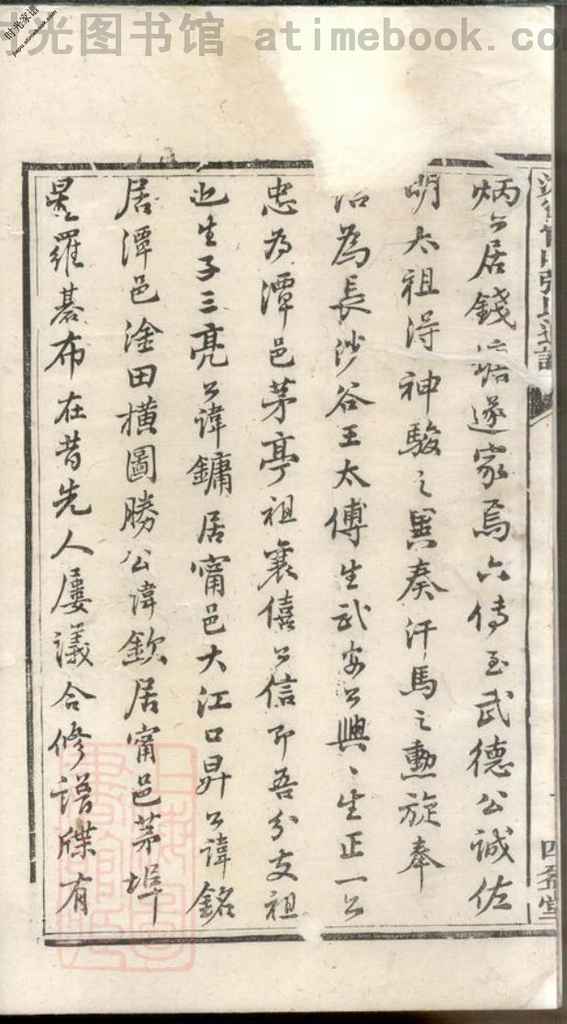 时光图书馆 atimebook.com
炳公居錢塘遂家焉六傳至武德公誠佐
明太祖得神駿之異奏汗馬之勳旋奉
為長沙谷王太傅生武安公興興生正一公
忠為潭邑茅亭祖襄僖公信即吾分支祖
也生子三亮公諱鏞居甯邑大江口昇公諱銘
居潭邑淦田橫圖勝公諱欽居甯邑茅埠
星羅碁布在昔先人屢議合修譜牒有